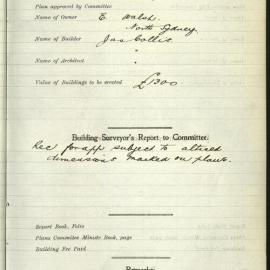 Plan approved by Committee
Name of Owner E. Walsh,
North Sydney.
Name of Builder Jas Collit
"
Name of Architect "
Value of Buildings to be erected £1300
Building Surveyor's Report to Committee.
Rec for app subject to altered
dimensions marked on plans.
Report Book, Folio
Plans Committee Minute Book, page
Building Fee Paid
Remarks